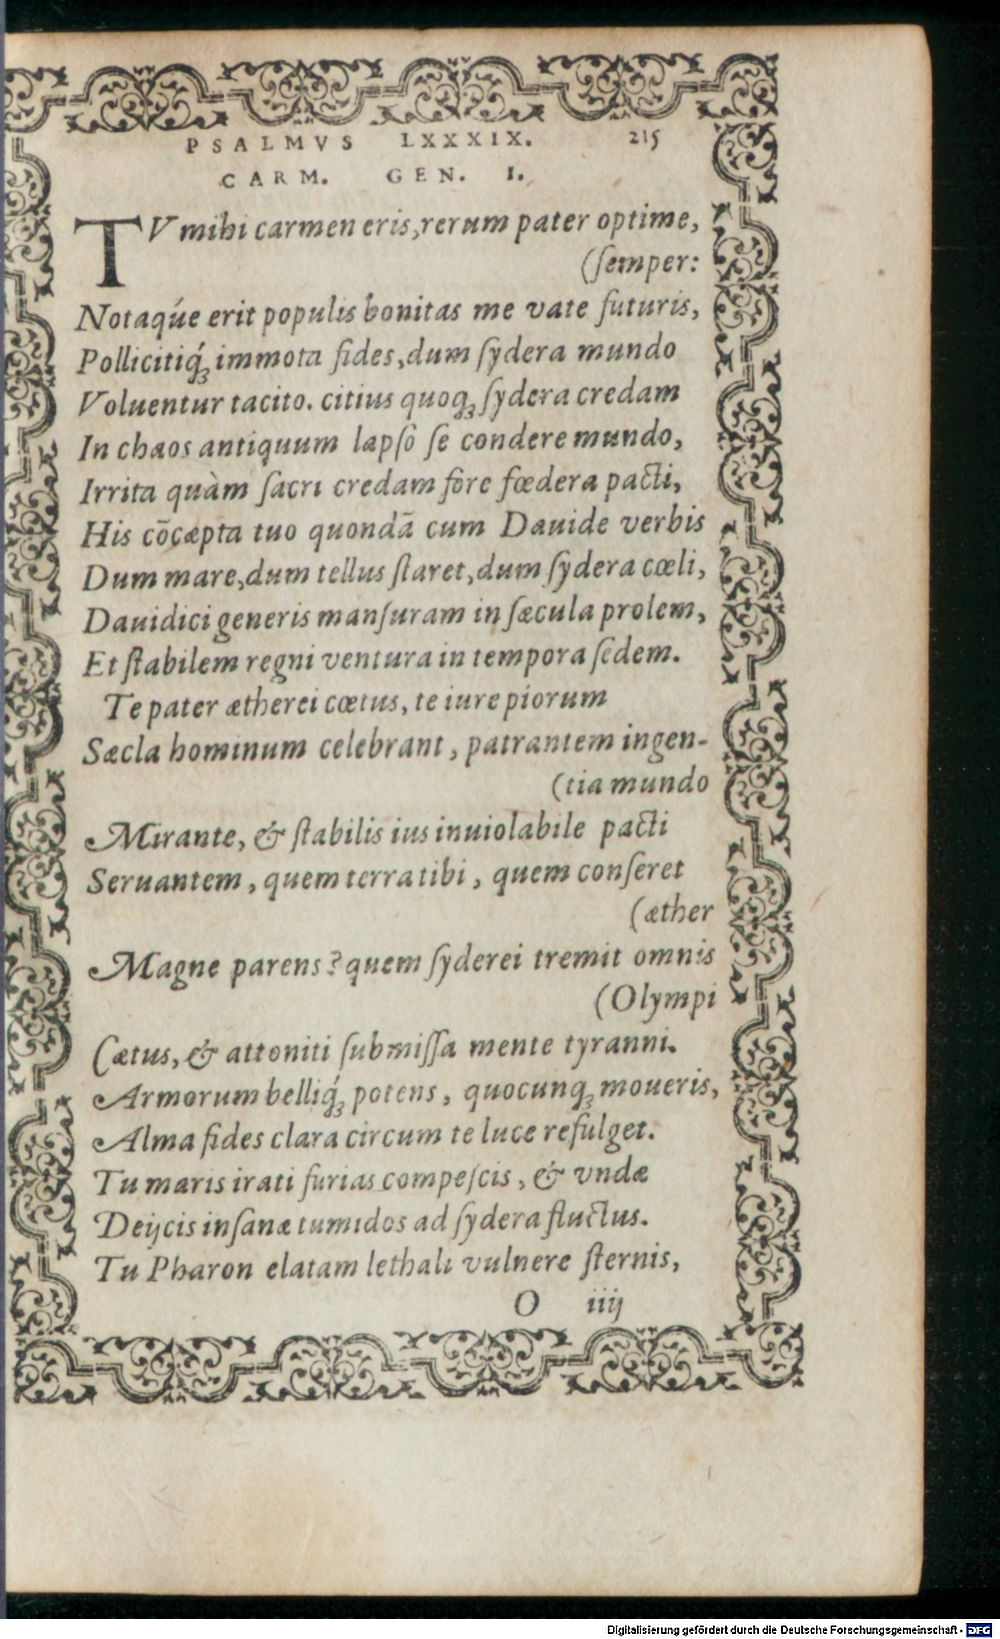 PSALMVS LXXXIX. 215
CARM. GEN. I.
TV mihi carmen eris, rerum pater optime,
(ſemper:
Notaq́ue erit populis bonitas me vate futuris,
Pollicitiq́ꝫ immota fides, dum ſydera mundo
Voluentur tacito. citius quoqꝫ ſydera credam
In chaos antiquum lapſo ſe condere mundo,
Irrita quàm ſacri credam fore fœdera pacti,
His cõcæpta tuo quondã cum Dauide verbis
Dum mare, dum tellus ſtaret, dum ſydera cœli,
Dauidici generis manſuram in ſæcula prolem,
Et ſtabilem regni ventura in tempora ſedem.
Te pater ætherei cœtus, te iure piorum
Sæcla hominum celebrant, patrantem ingen-
(tia mundo
Mirante, & ſtabilis ius inuiolabile pacti
Seruantem, quem terra tibi, quem conferet
(æther
Magne parens? quem ſyderei tremit omnis
(Olympi
Cætus, & attoniti ſubmiſſa mente tyranni.
Armorum belliq́ꝫ potens, quocunqꝫ moueris,
Alma fides clara circum te luce refulget.
Tu maris irati furias compeſcis, & vndæ
Deijcis inſanæ tumidos ad ſydera fluctus.
Tu Pharon elatam lethali vulnere ſternis,
O iiij
Digitalisierung gefördert durch die Deutsche Forschungsgemeinschaft - DFG